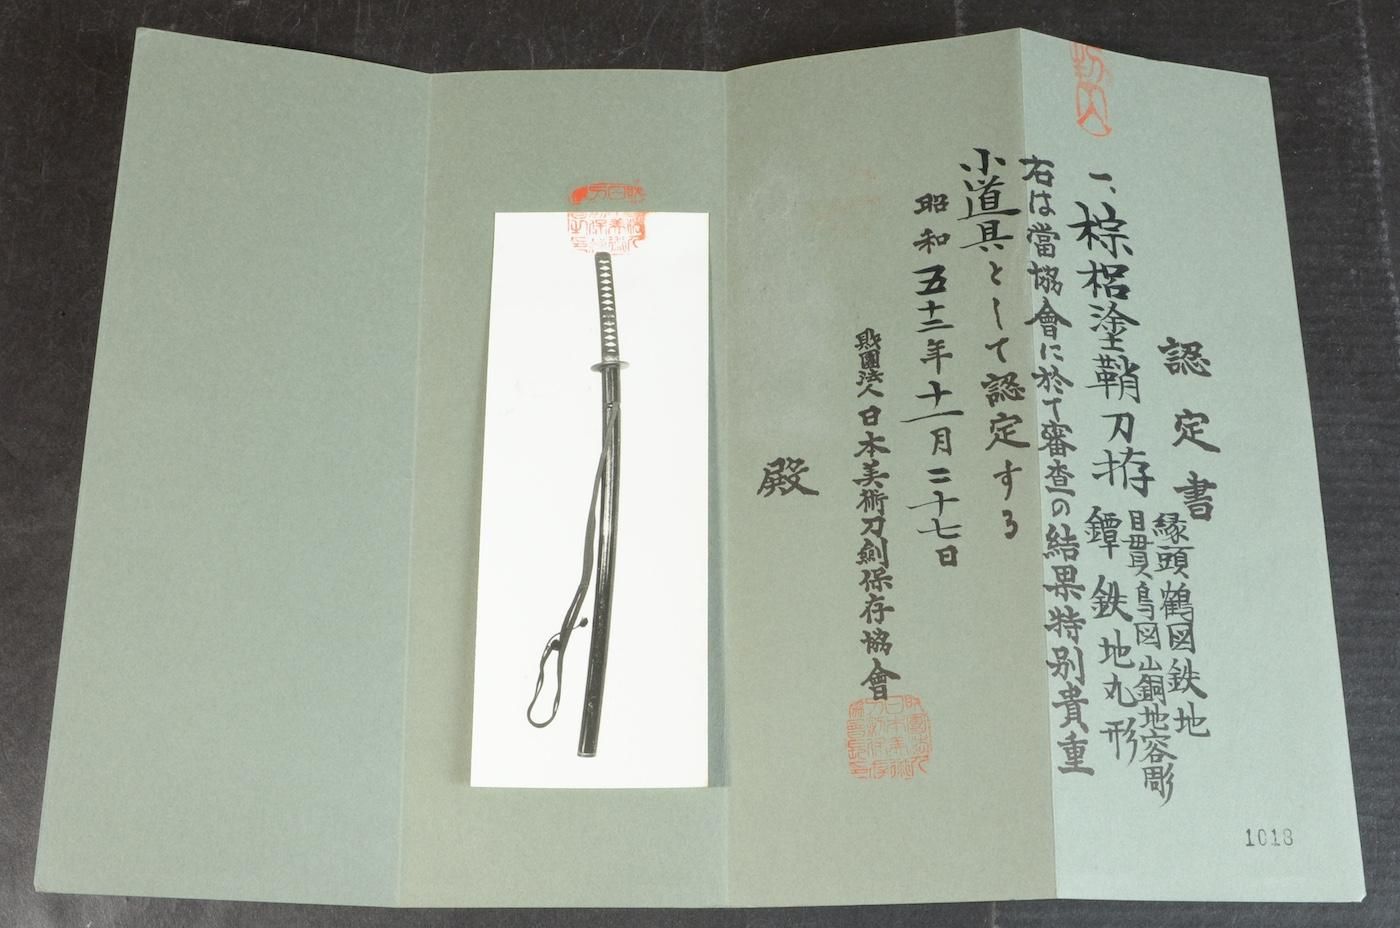 認定書
一、棕梠塗鞘刀拵
縁頭鶴図鉄地
目貫鳥図山銅地容彫
鐔鉄地丸形
右は當協會に於て審査の結果特別貴重
小道具として認定する
昭和五十二年十一月二十七日
財團法人日本美術刀劍保存協會
殿
1018